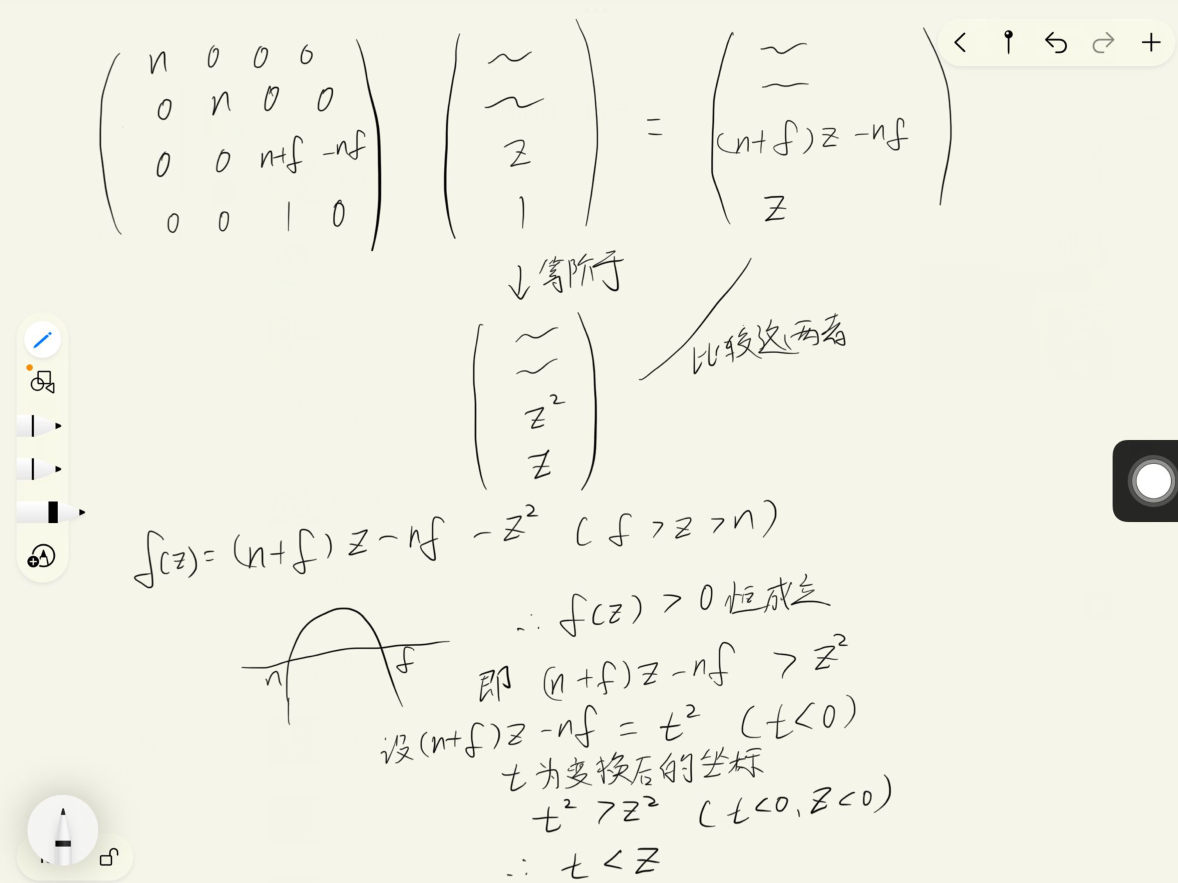 n 0 0 0
0 n 0 0
0 0 n+f -nf
0 0 1 0
~
~
z
1
=
~
~
(n+f)z -nf
z
↓等阶于
~
~
z²
z
比较这两者
f(z)=(n+f)z-nf -z² (f>z>n)
n f
∴ f(z)>0恒成立
即 (n+f)z-nf >z²
设(n+f)z-nf = t² (t<0)
t为变换后的坐标
t²>z² (t<0, z<0)
∴ t<z